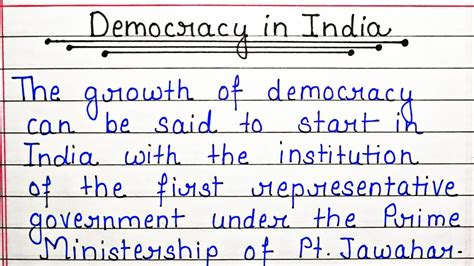 Democracy in India
The growth of democracy
can be said to start in
India with the institution
of the first representative
government under the Prime
Ministership of Pt. Jawahar-